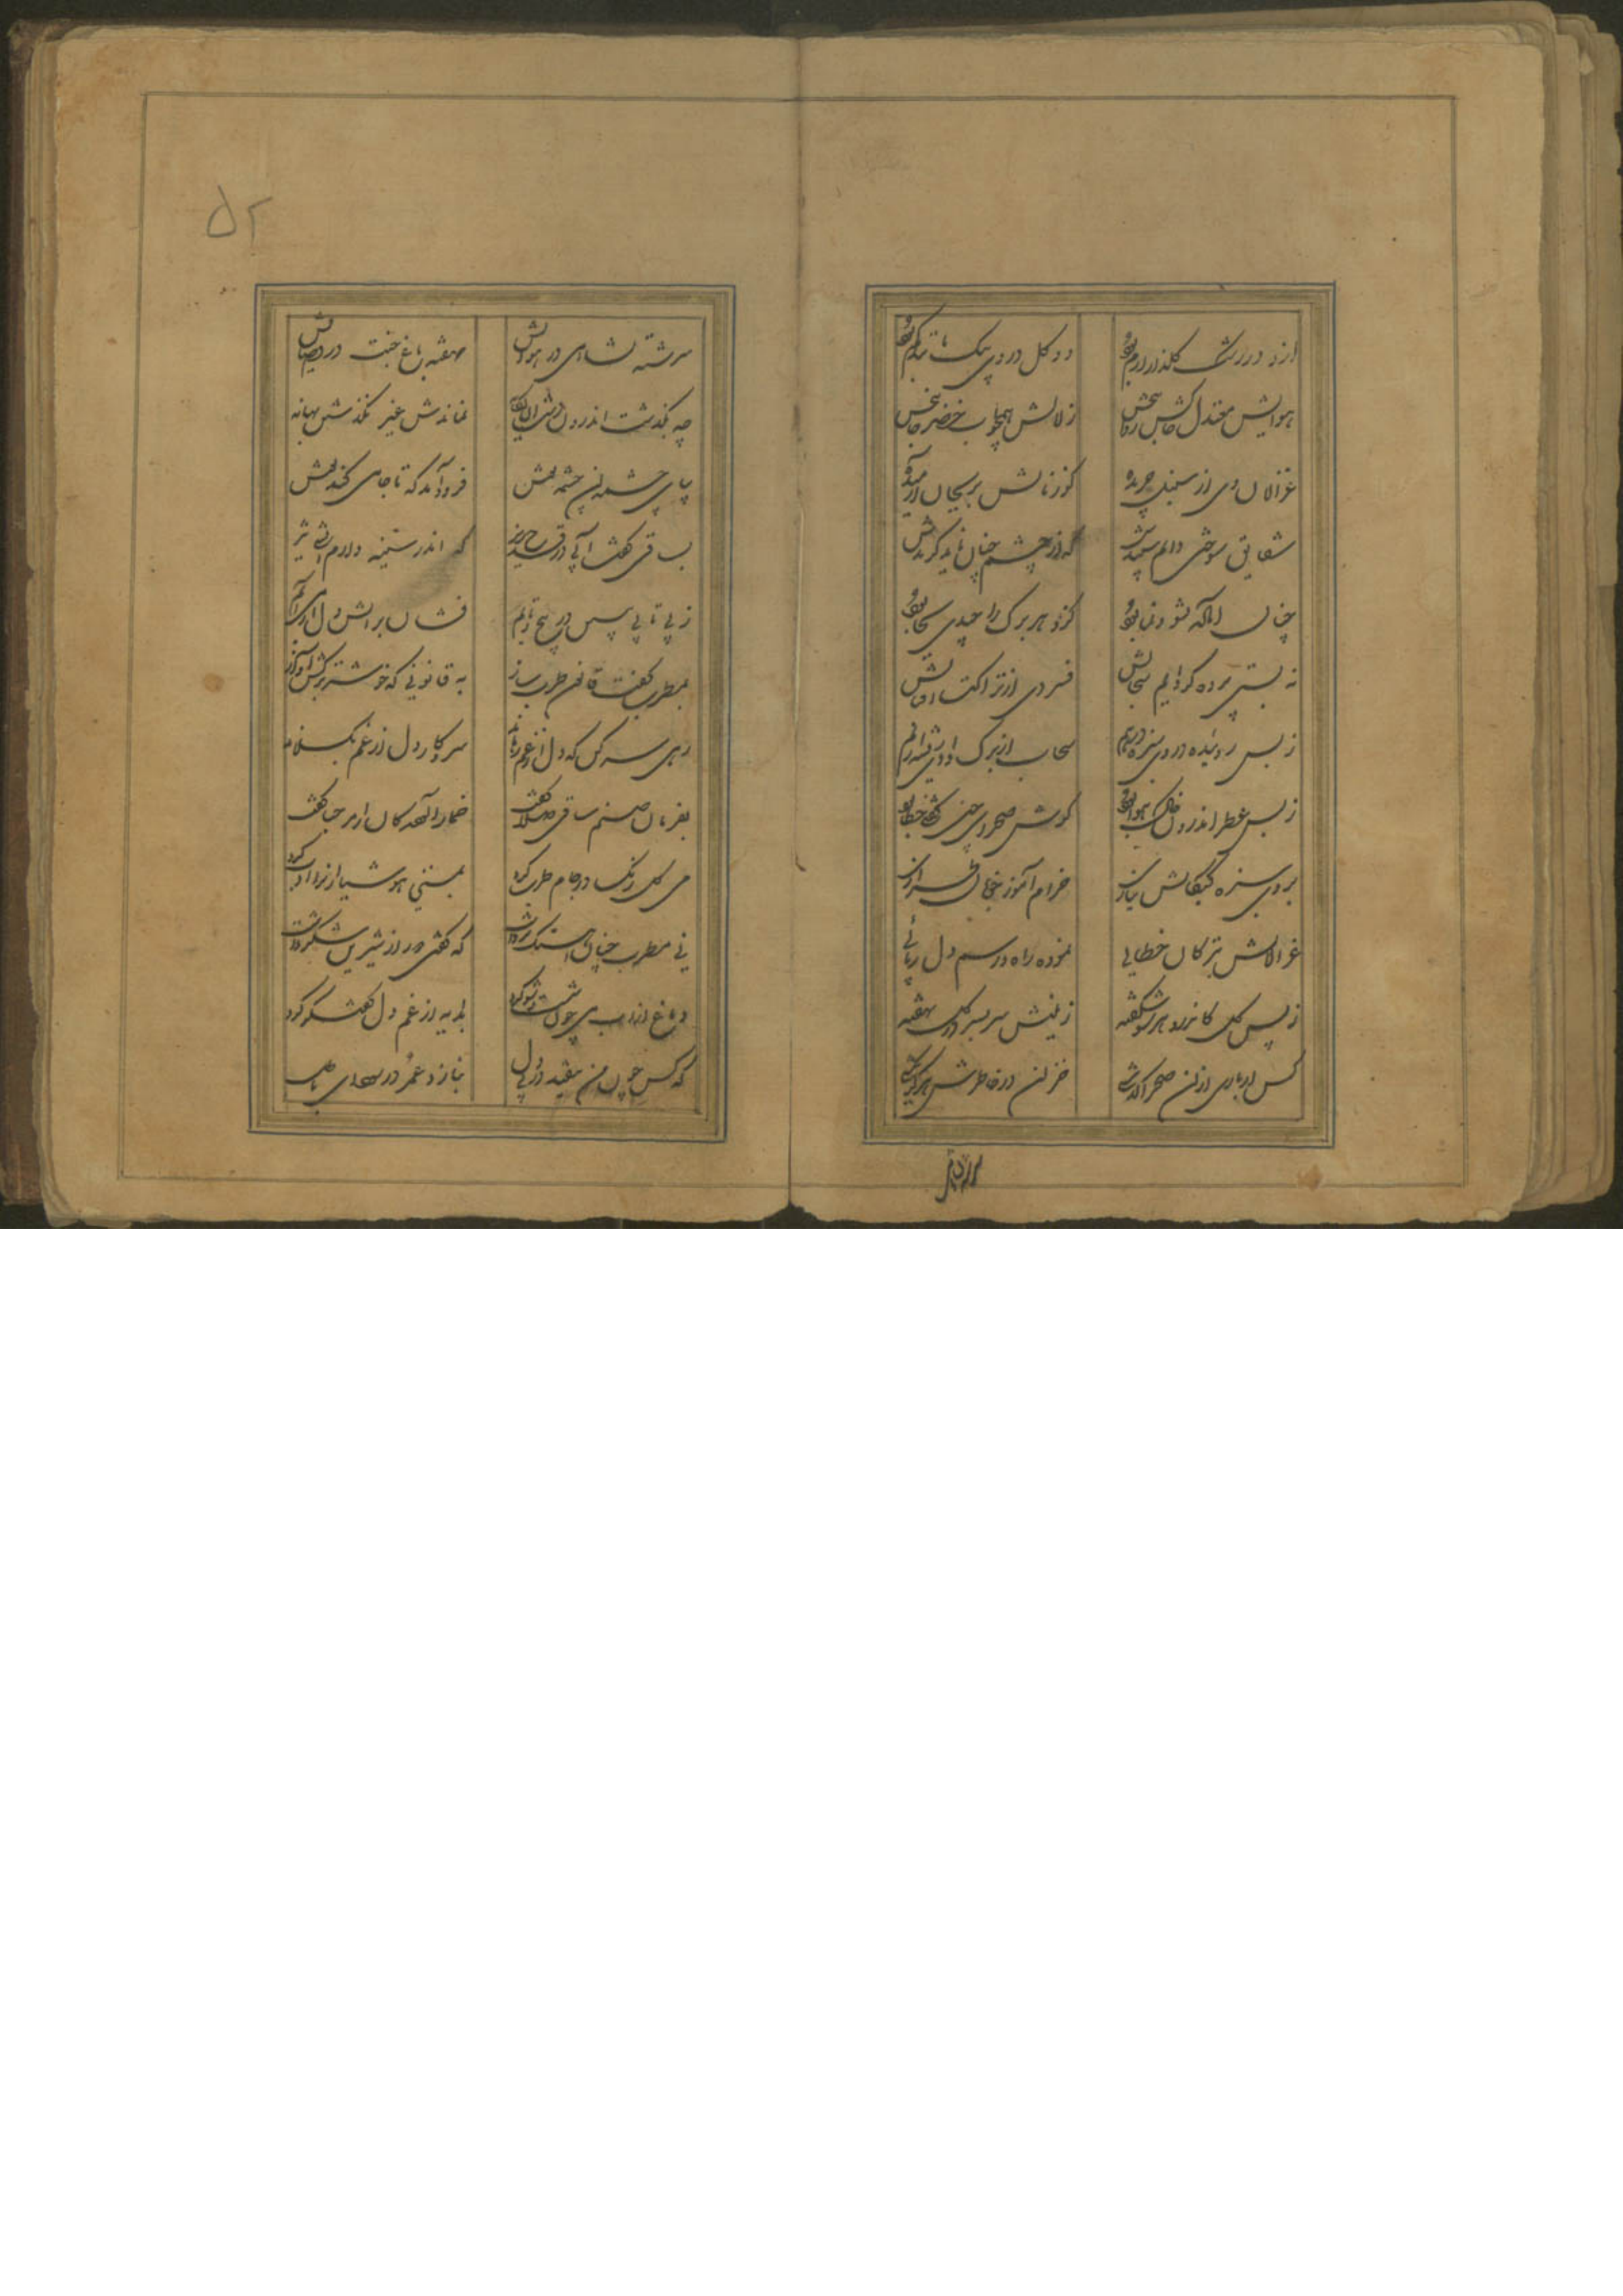 ازو در رشک گلزار ارم بود دو گل در وی بیک جا تو بهم بود
هوایش معتدل خاکش روان بخش زلالش همچو آب خضر جان بخش
غزالان وی از سنبل چریده گوزنانش بریحان آرمیده
شقایق سوختی دایم سپندش که از چشم خزان ناید گزندش
چنان آماده نشو و نما بود کزو هر برگ را چیدی بجا بود
نه بستی پرده گر دایم سحابش فسردی از نزاکت آفتابش
ز بس روئیده در وی سبزه در هم سحاب از برگ دادی قسمت نم
ز بس عطر اندر وی خاک هوا بود گوش صحرای چین گفتن خطا بود
بروی سبزه کبکانش بناز خرام آموز خوبان
غزالانش بترکان خطایی نموده راه و رسم دل ربائی
ز بس گل کاندرو هر سو شکفته زمینش سر بسر در گل نهفته
کس ار باری از آن صحرا گذشتی خزان در خاطرش هرگز نگشتی
سرشته
سرشته نشاه می در هوایش نهفته باغ جنت در فضایش
چه بگذشت اندر آن دشت نماندش غیر بگذشتن بهانه
بپای چشمه آن چشمه نوش فرود آمد که تا جامی کند نوش
بساقی گفت آبی در قدح ریز که اندر سینه دارم آتشی تیز
ز بی تابی ببین در پیچ و تابم فشان بر آتش دل از می آبم
بمطرب گفت قانون طرب ساز به قانونی که خوشتر برکش آواز
رهی سر کن که دل از غم رهاند سر و کار دل از غم بگسلاند
بفرمان صنم ساقی صلا گفت خمار آلودگان را مرحبا گفت
می گلرنگ در جام طرب کرد بمستی هوشیاران را ادب کرد
نی مطرب چنان آهنگ برداشت که گفتی در از شیرین شکر داشت
دماغ از آب می چون شست و شو کرد بدایه از غم دل گفتگو کرد
که کس چون من مقید در پی دل نبازد عمر در سودای باطل
۵۲